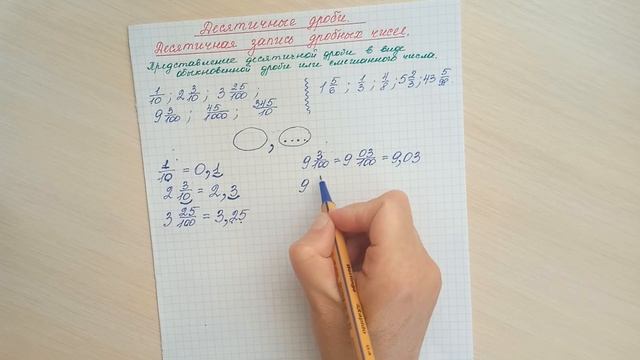 Десятичные дроби.
Десятичная запись дробных чисел.
Представление десятичной дроби в виде
обыкновенной дроби или смешанного числа.
1/10 ; 2 3/10 ; 3 25/100 ;
9 3/100 ; 45/1000 ; 345/10
1 5/6 ; 1/3 ; 4/8 ; 5 2/3 ; 43 5/98 .
1/10 = 0,1
2 3/10 = 2,3
3 25/100 = 3,25
9 3/100 = 9 03/100 = 9,03
9